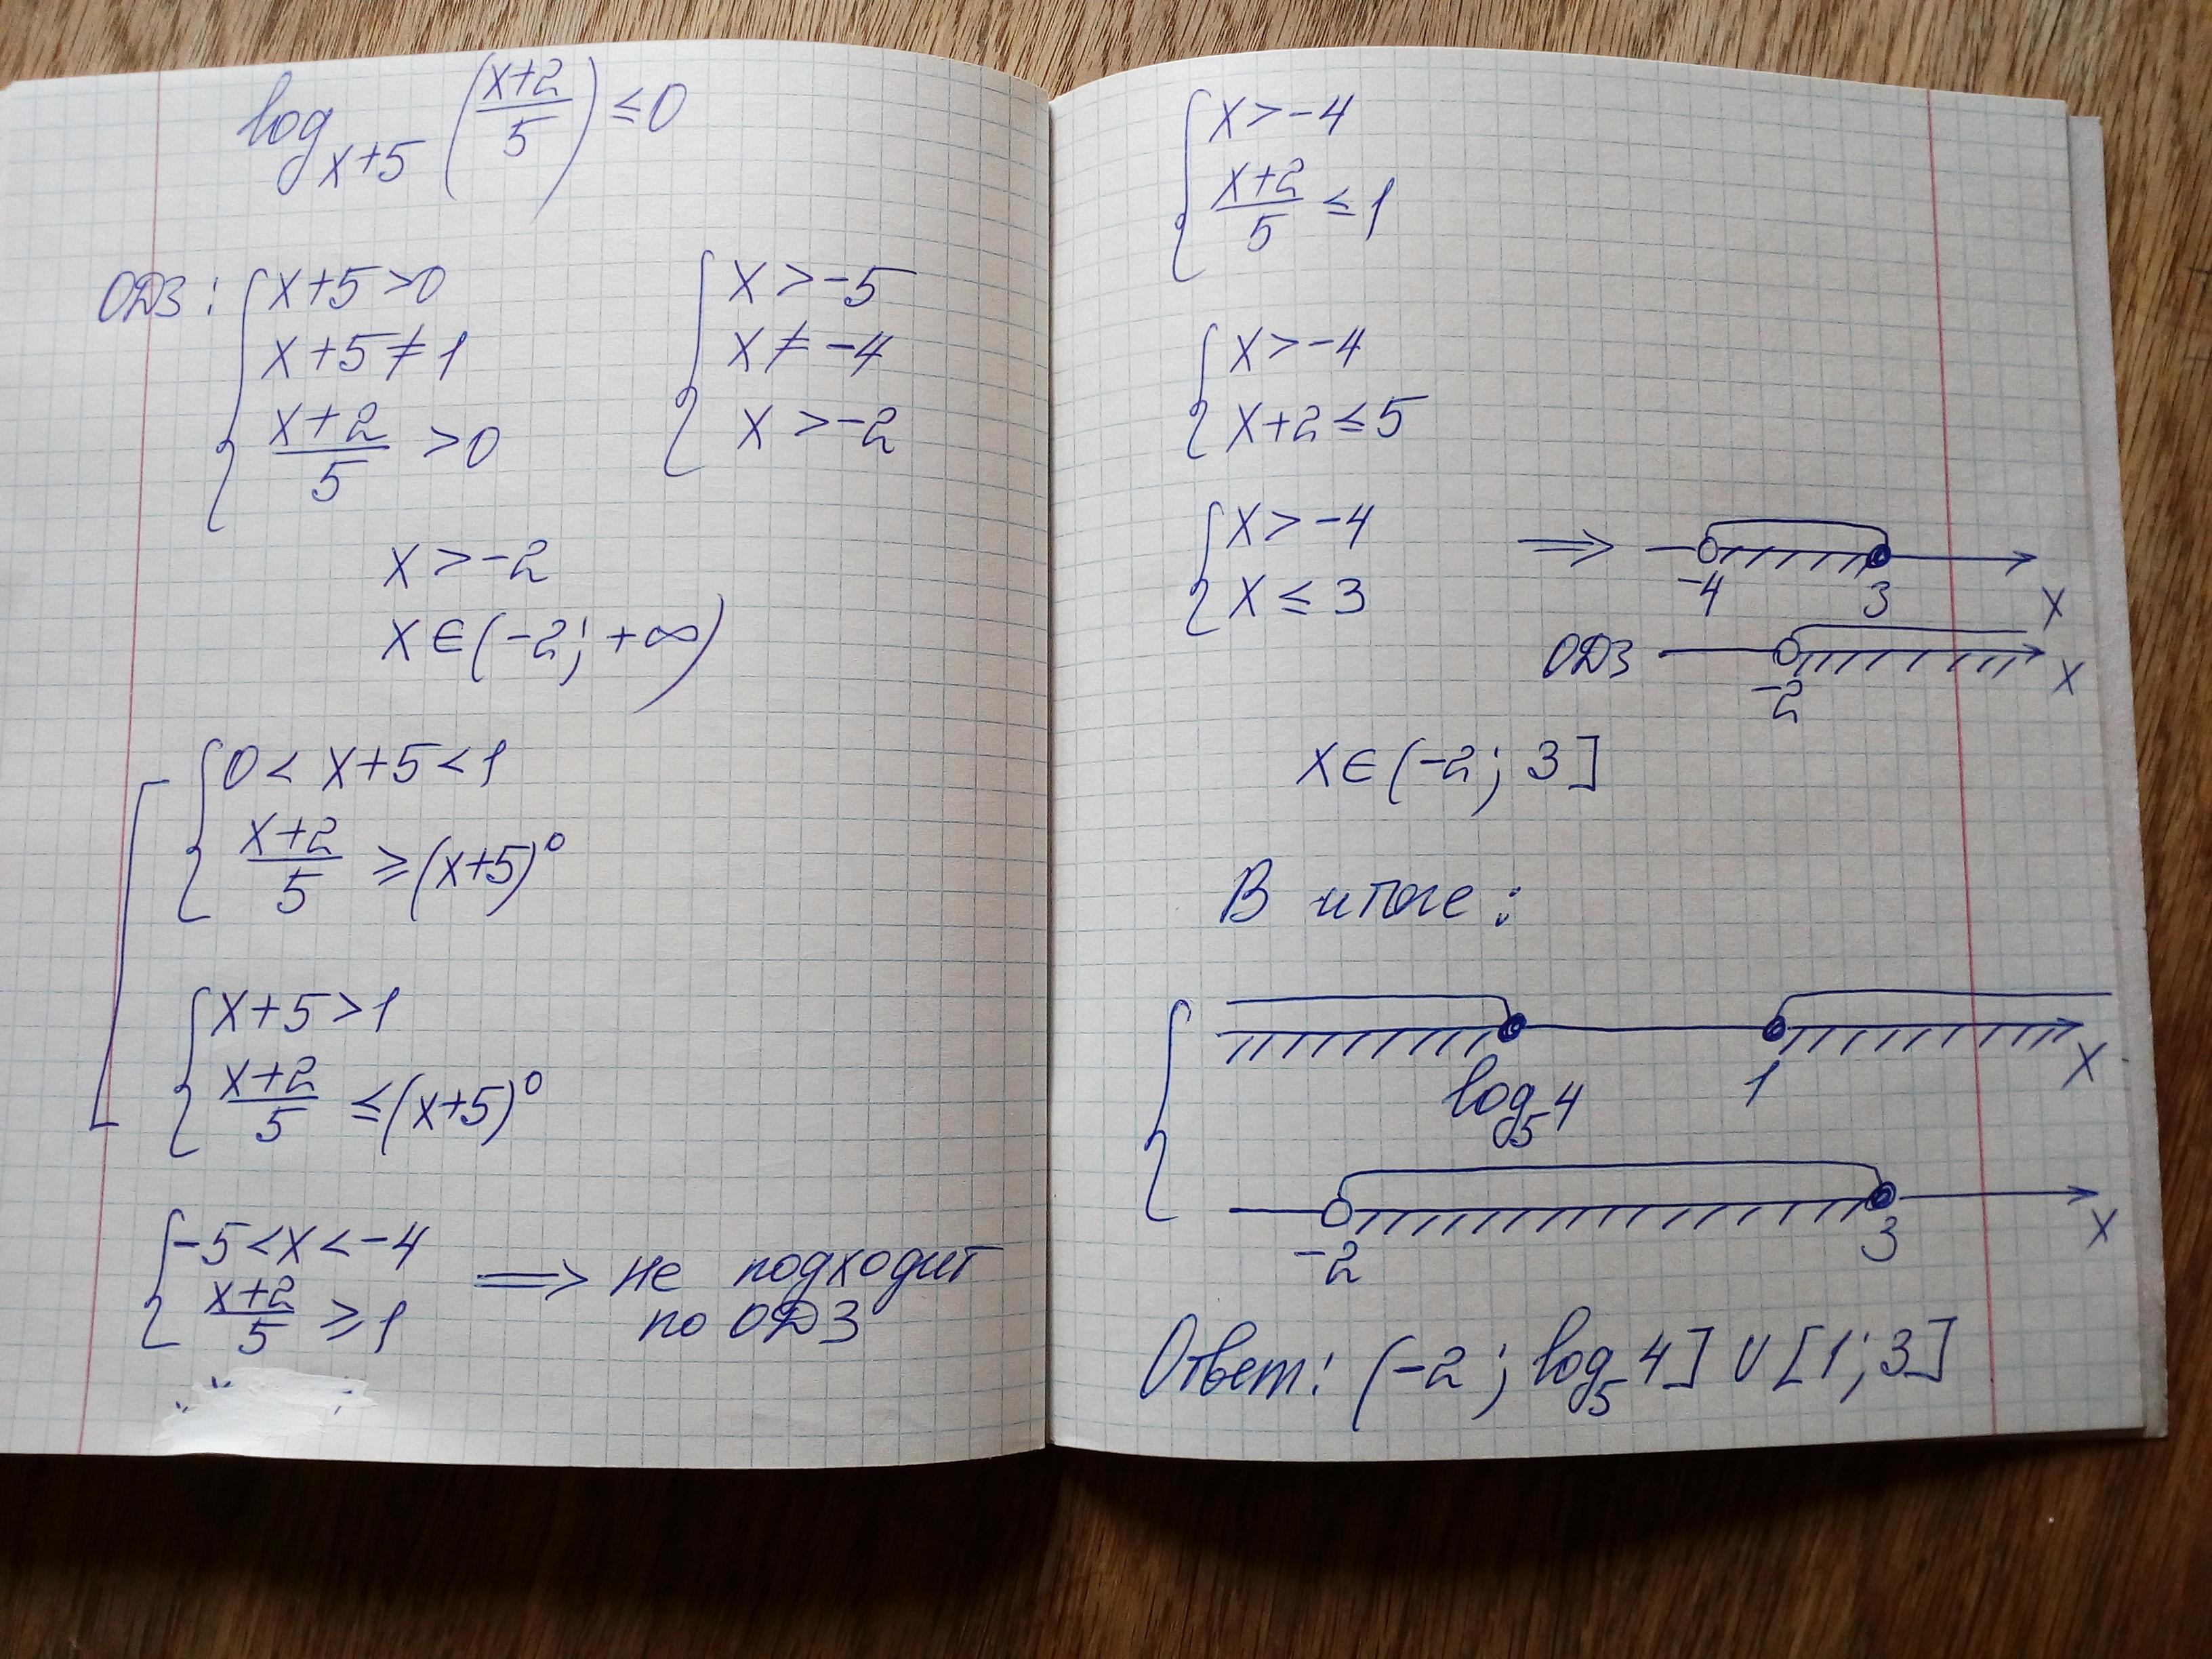 log_{x+5} ((x+2)/5) ≤ 0
ОДЗ: { x+5>0
x+5≠1
(x+2)/5 >0
{ x>-5
x≠-4
x>-2
x>-2
x∈(-2; +∞)
[ { 0< x+5<1
(x+2)/5 ≥(x+5)^0
{ x+5>1
(x+2)/5 ≤(x+5)^0
{ -5<x<-4
(x+2)/5 ≥1
⟹ не подходит
по ОДЗ
{ x>-4
(x+2)/5 ≤1
{ x>-4
x+2≤5
{ x>-4
x≤3
⟹
-4 3 x
ОДЗ -2 x
x∈(-2; 3]
В итоге:
log_5 4 1 x
-2 3 x
Ответ: (-2; log_5 4] ∪ [1; 3]